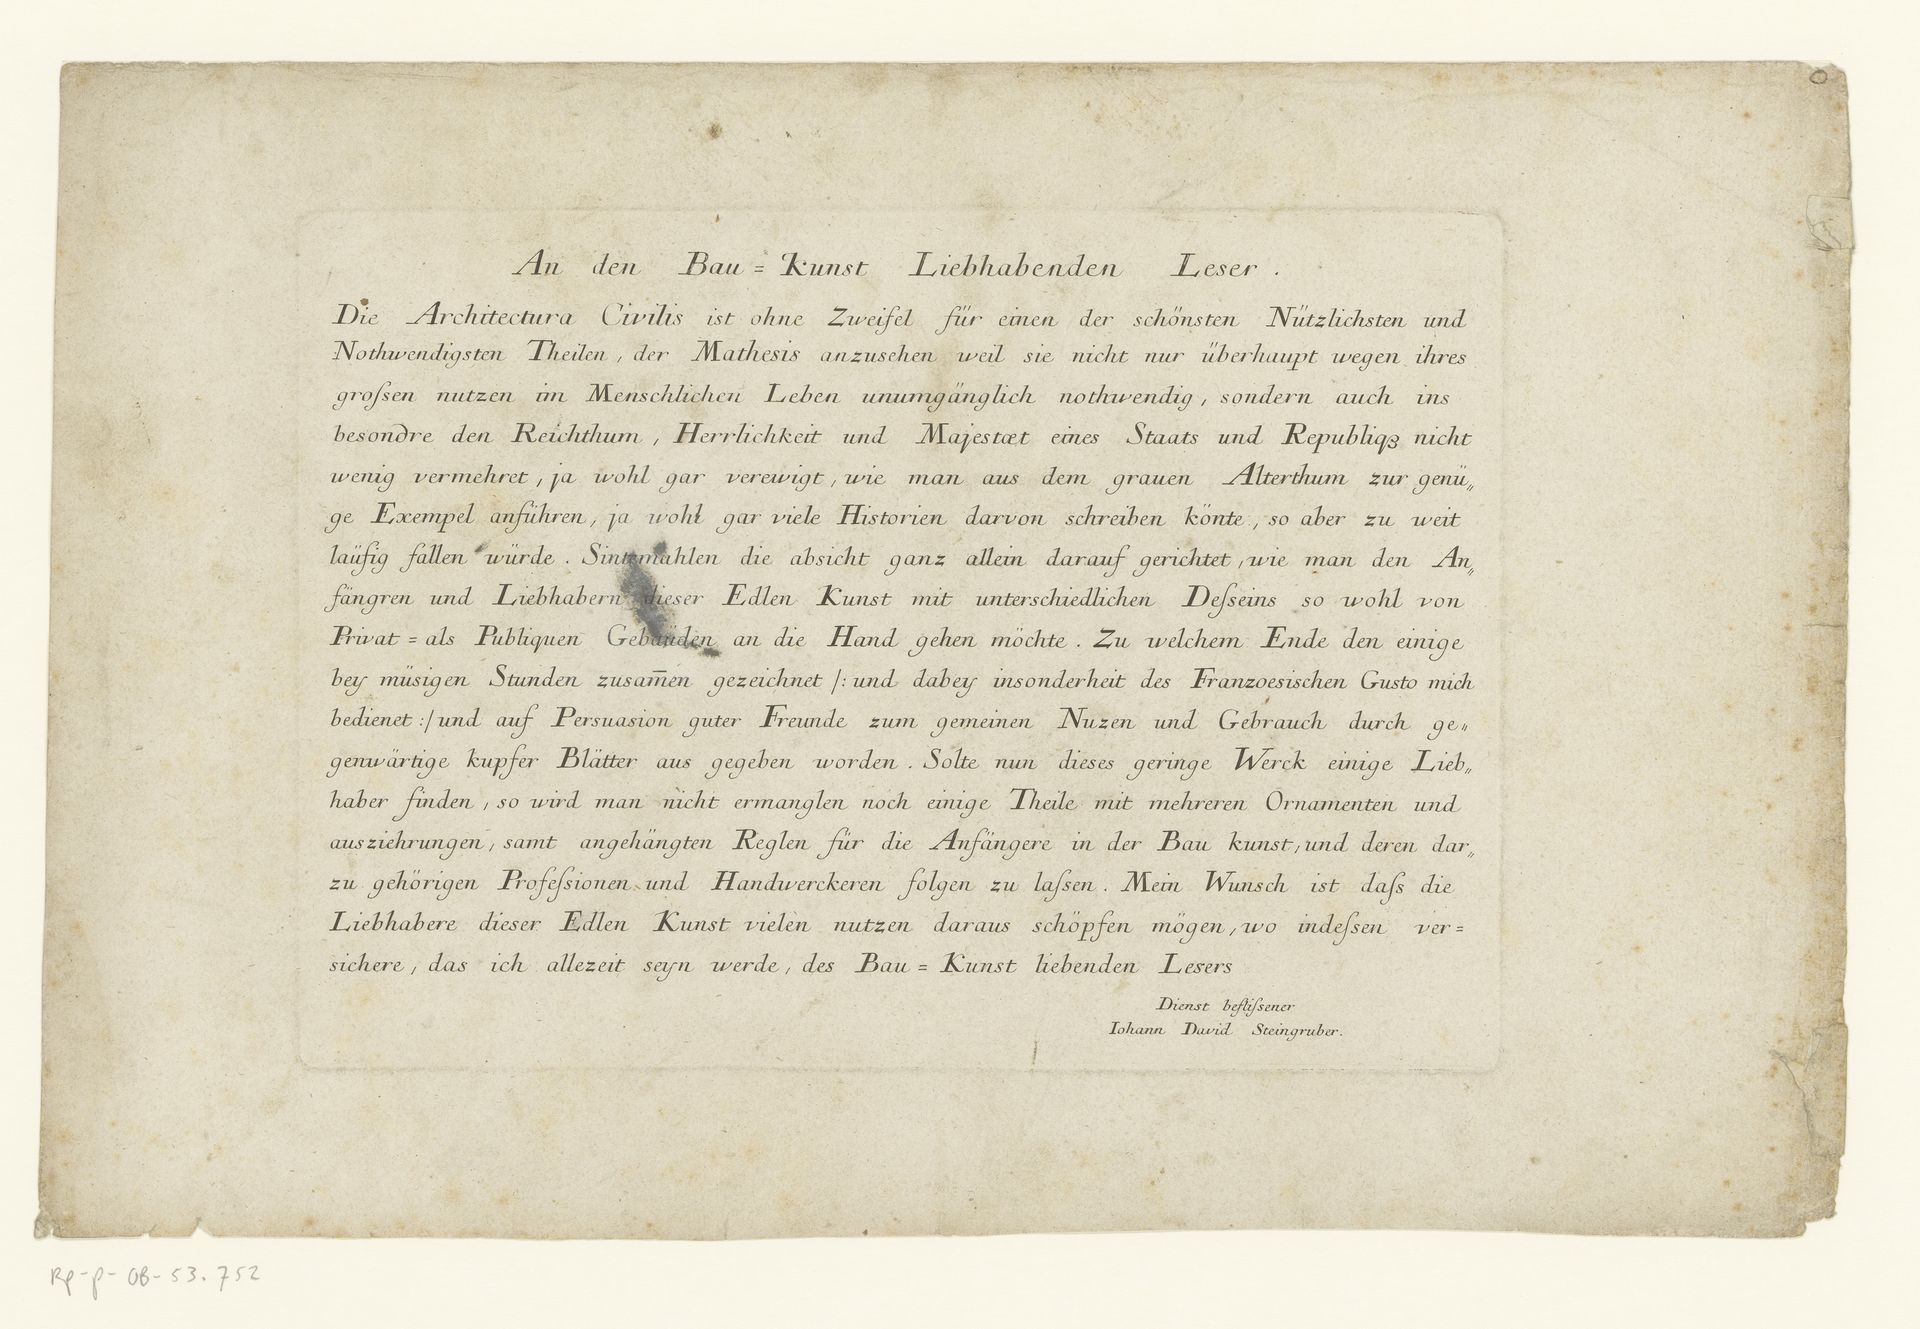 An den Bau = Kunst Liebhabenden Leser .
Die Architectura Civilis ist ohne Zweifel für einen der schönsten Nützlichsten und
Nothwendigsten Theilen, der Mathesis anzusehen weil sie nicht nur überhaupt wegen ihres
groſsen nutzen im Menschlichen Leben unumgänglich nothwendig, sondern auch ins
besondre den Reichthum, Herrlichkeit und Majestæt eines Staats und Republiqꝫ nicht
wenig vermehret, ja wohl gar verewigt, wie man aus dem grauen Alterthum zur genü„
ge Exempel anführen, ja wohl gar viele Historien darvon schreiben könte, so aber zu weit
läüfig fallen würde. Sintemahlen die absicht ganz allein darauf gerichtet, wie man den An„
fängren und Liebhabern dieser Edlen Kunst mit unterschiedlichen Deſseins so wohl von
Privat = als Publiquen Gebäüden an die Hand gehen möchte. Zu welchem Ende den einige
bey müsigen Stunden zusam̅en gezeichnet /: und dabey insonderheit des Franzoesischen Gusto mich
bedienet :/ und auf Persuasion guter Freunde zum gemeinen Nuzen und Gebrauch durch ge„
genwärtige kupfer Blätter aus gegeben worden. Solte nun dieses geringe Werck einige Lieb„
haber finden, so wird man nicht ermanglen noch einige Theile mit mehreren Ornamenten und
ausziehrungen, samt angehängten Reglen für die Anfängere in der Bau kunst, und deren dar„
zu gehörigen Profeſsionen und Handwerckeren folgen zu laſsen. Mein Wunsch ist daſs die
Liebhabere dieser Edlen Kunst vielen nutzen daraus schöpfen mögen, wo indeſsen ver=
sichere, das ich allezeit seyn werde, des Bau = Kunst liebenden Lesers
Dienst befliſsener
Iohann David Steingruber.
RP-P-OB-53.752